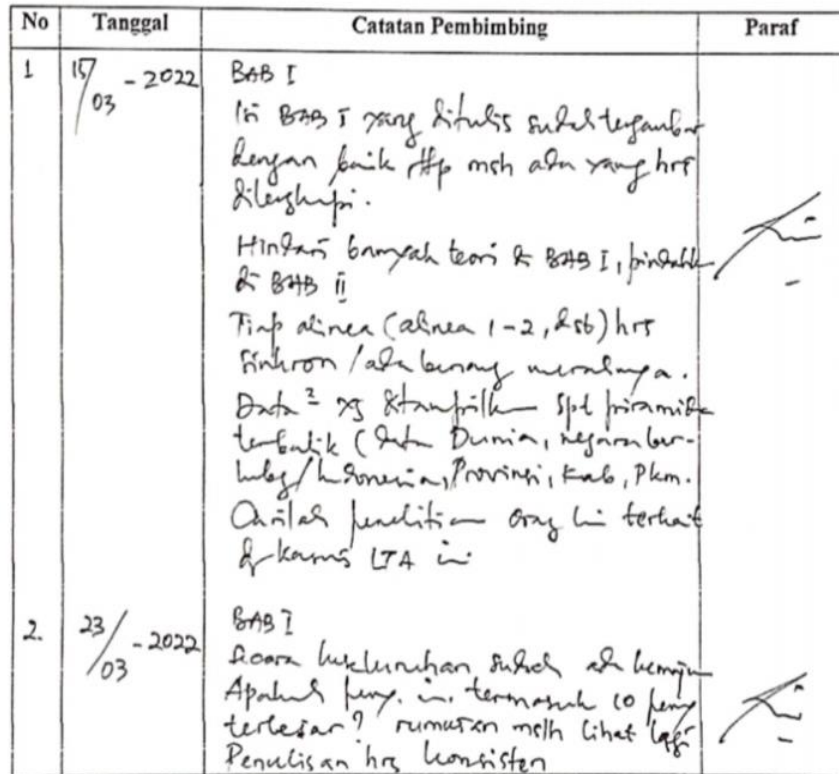 No Tanggal Catatan Pembimbing Paraf
1 15/03 - 2022 BAB I
Isi BAB I yang ditulis sudah tergambar
dengan baik ttp msh ada yang hrs
dilengkapi.
Hindari banyak teori di BAB I, pindahk
di BAB II
Tiap alinea (alinea 1-2, dsb) hrs
sinkron / ada benang merahnya.
Data² yg ditampilkan spt piramida
terbalik (data Dunia, negara ber-
/ Indonesia, Provinsi, Kab, Pkm.
Carilah penelitian orang lain terkait
dg kasus LTA ini
2. 23/03 - 2022 BAB I
Secara keseluruhan sudah ada
Apakah peny. ini termasuk 10 peny
terbesar? rumusan mslh lihat lagi
Penulisan hrs konsisten